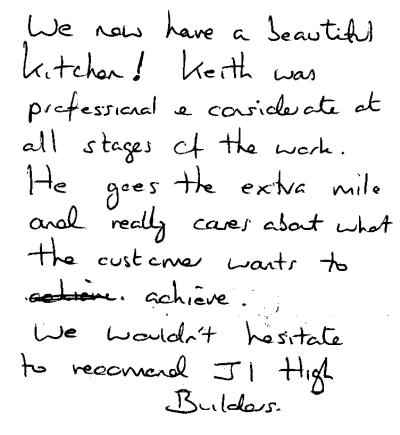 We now have a beautiful
kitchen! Keith was
professional & considerate at
all stages of the work.
He goes the extra mile
and really cares about what
the customer wants to
achieve. achieve.
We wouldn't hesitate
to recomend J1 High
Builders.